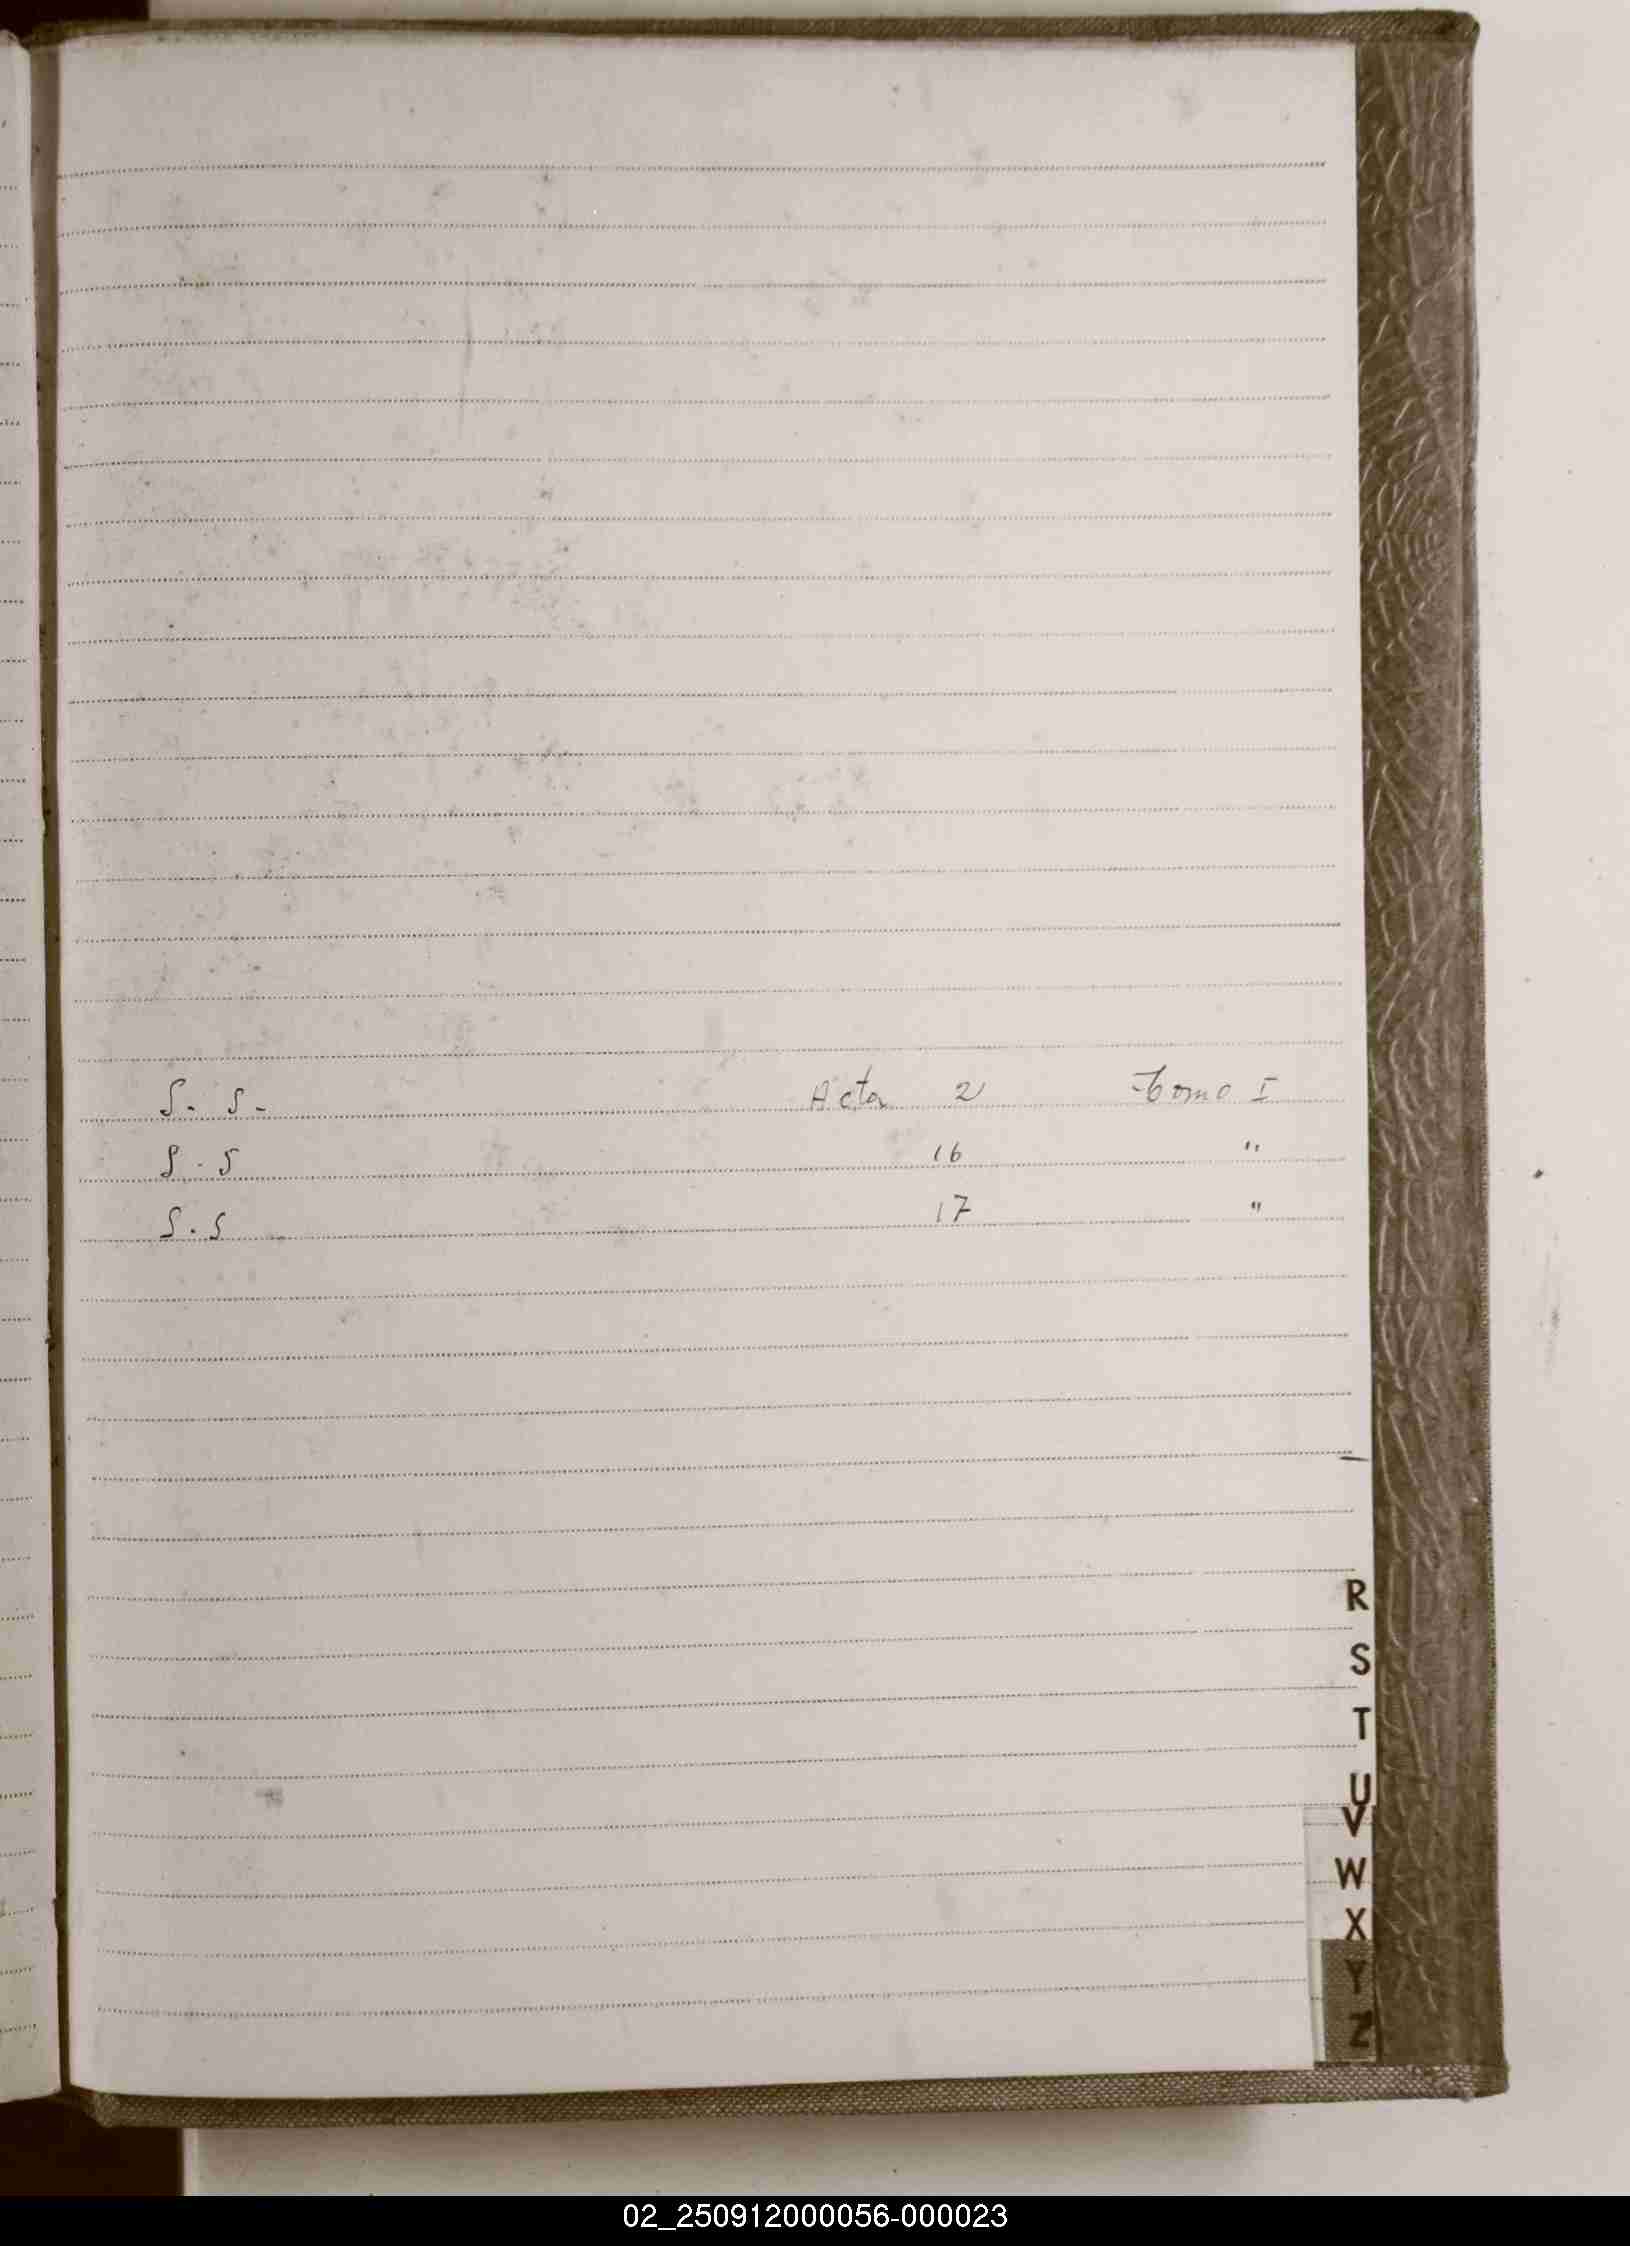 S. S. Acta 2 Tomo I
S. S 16 "
S. S 17 "
R
S
T
U
V
W
X
Y
Z
02_250912000056-000023